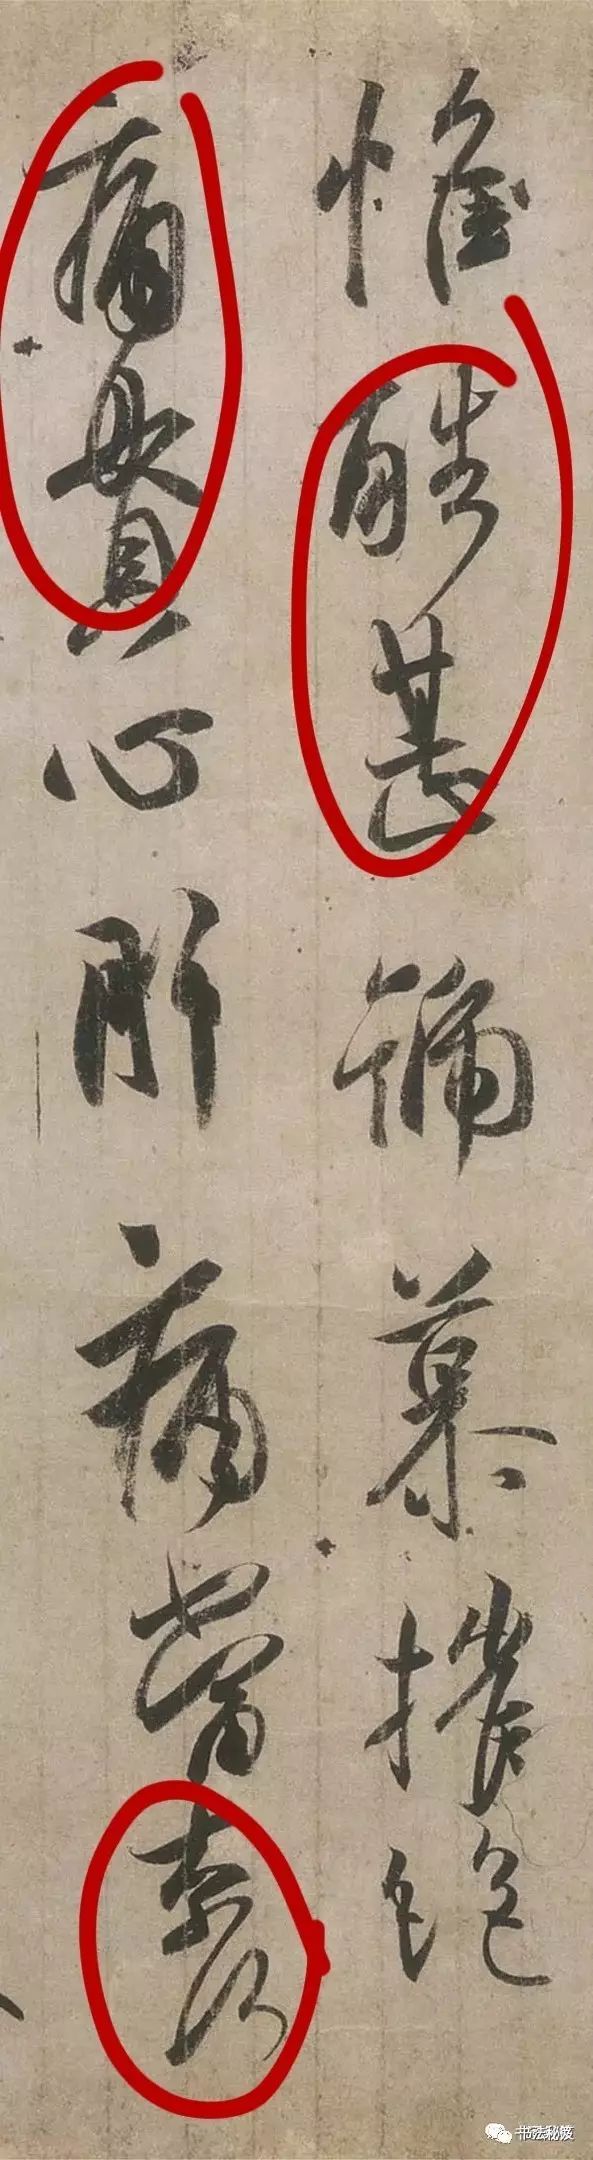 惟酷甚號慕摧絶
痛貫心肝痛當奈何
书法秘笈